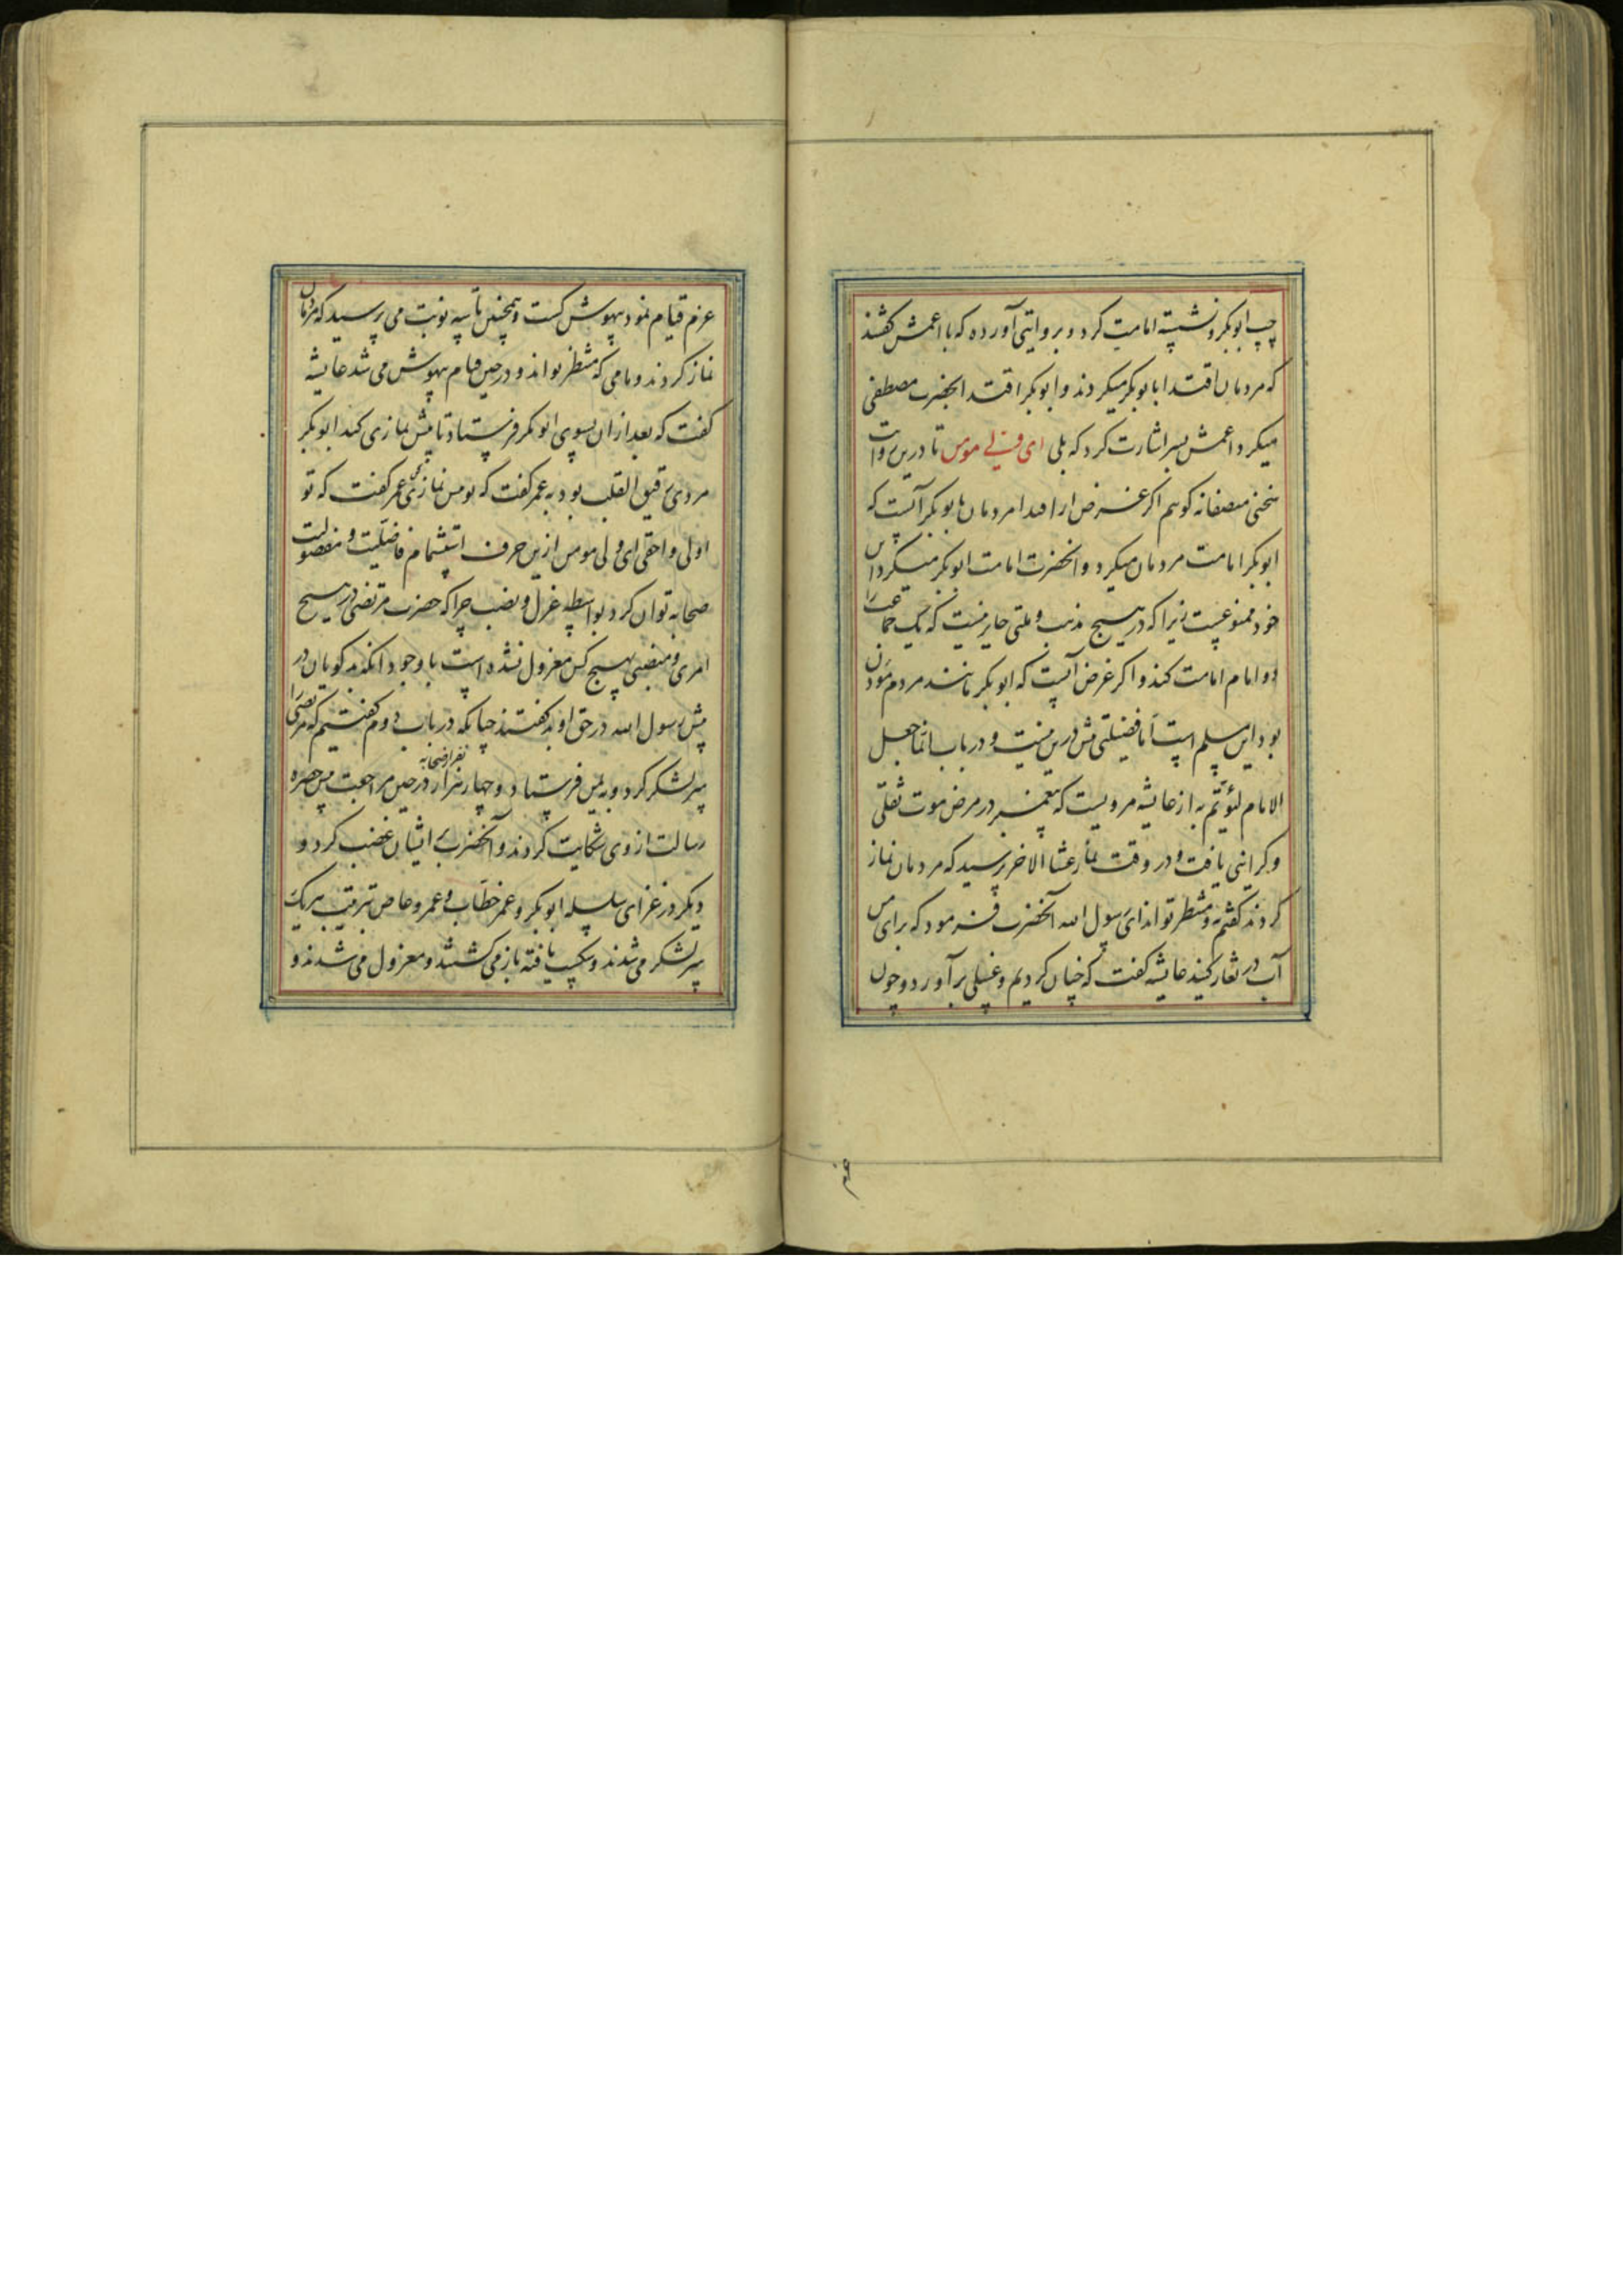 چپ ابوبکر و نشسته امامت کرد و بروایتی آورده که با اعمش گفتند
که مردمان اقتدا بابوبکر میکردند و ابوبکر اقتدا بحضرت مصطفی
میکرد اعمش بسر اشارت کرد که بلی ای ولی مومن تا درین روایت
سخنی منصفانه گویم اگر غرض از اقتدا مردمان بابوبکر آنست که
ابوبکر امامت مردمان میکرد و انحضرت امامت ابوبکر میکرد این
خود ممنوعست زیرا که در هیچ مذهب و ملتی جایز نیست که یک جماعت را
دو امام امامت کند و اگر غرض آنست که ابوبکر مانند مردم موذن
بود این مسلم است اما فضیلتی بیش درین نیست و در باب انما جعل
الامام لیؤتم به از عایشه مرویست که پیغمبر در مرض موت ثقلی
و گرانی یافت و در وقت نماز عشا الاخر پرسید که مردمان نماز
کردند گفتم نه و منتظر تواند ای رسول الله آنحضرت فرمود که برای من
آب در تغار کنید عایشه گفت که چنان کردیم و غسلی برآورد و چون
عزم
عزم قیام نمود بیهوش گشت و همچنین تا سه نوبت می پرسید که مردمان
نماز کردند و ما می که منتظر تواند و در حین قیام بیهوش می شد عایشه
گفت که بعد از ان بسوی ابوبکر فرستاد تا پیش نمازی کند ابوبکر
مردی رقیق القلب بود به عمر گفت که تو پیش نمازی کن عمر گفت که تو
اولی و احقی ای ولی مومن ازین حرف استشمام فاضلیت و مفضولیت
صحابه توان کرد بواسطه عزل و نصب چرا که حضرت مرتضی در هیچ
امری و منصبی بهیچ کس معزول نشده است با وجود انکه بدگویان در
پیش رسول الله در حق او بد گفتند چنانکه در باب دوم گفتیم که مرتضی را
سر لشکر کرد و به یمن فرستاد و چهار نفر از صحابه در حین مراجعت پیش حضره
رسالت از وی شکایت کردند و آنحضرت بر ایشان غضب کرد و
دیگر در غزای سلسله ابوبکر و عمر خطاب و عمرو عاص بترتیب هر یک
سر لشکر می شدند و شکست یافته باز می گشتند و معزول می شدند و